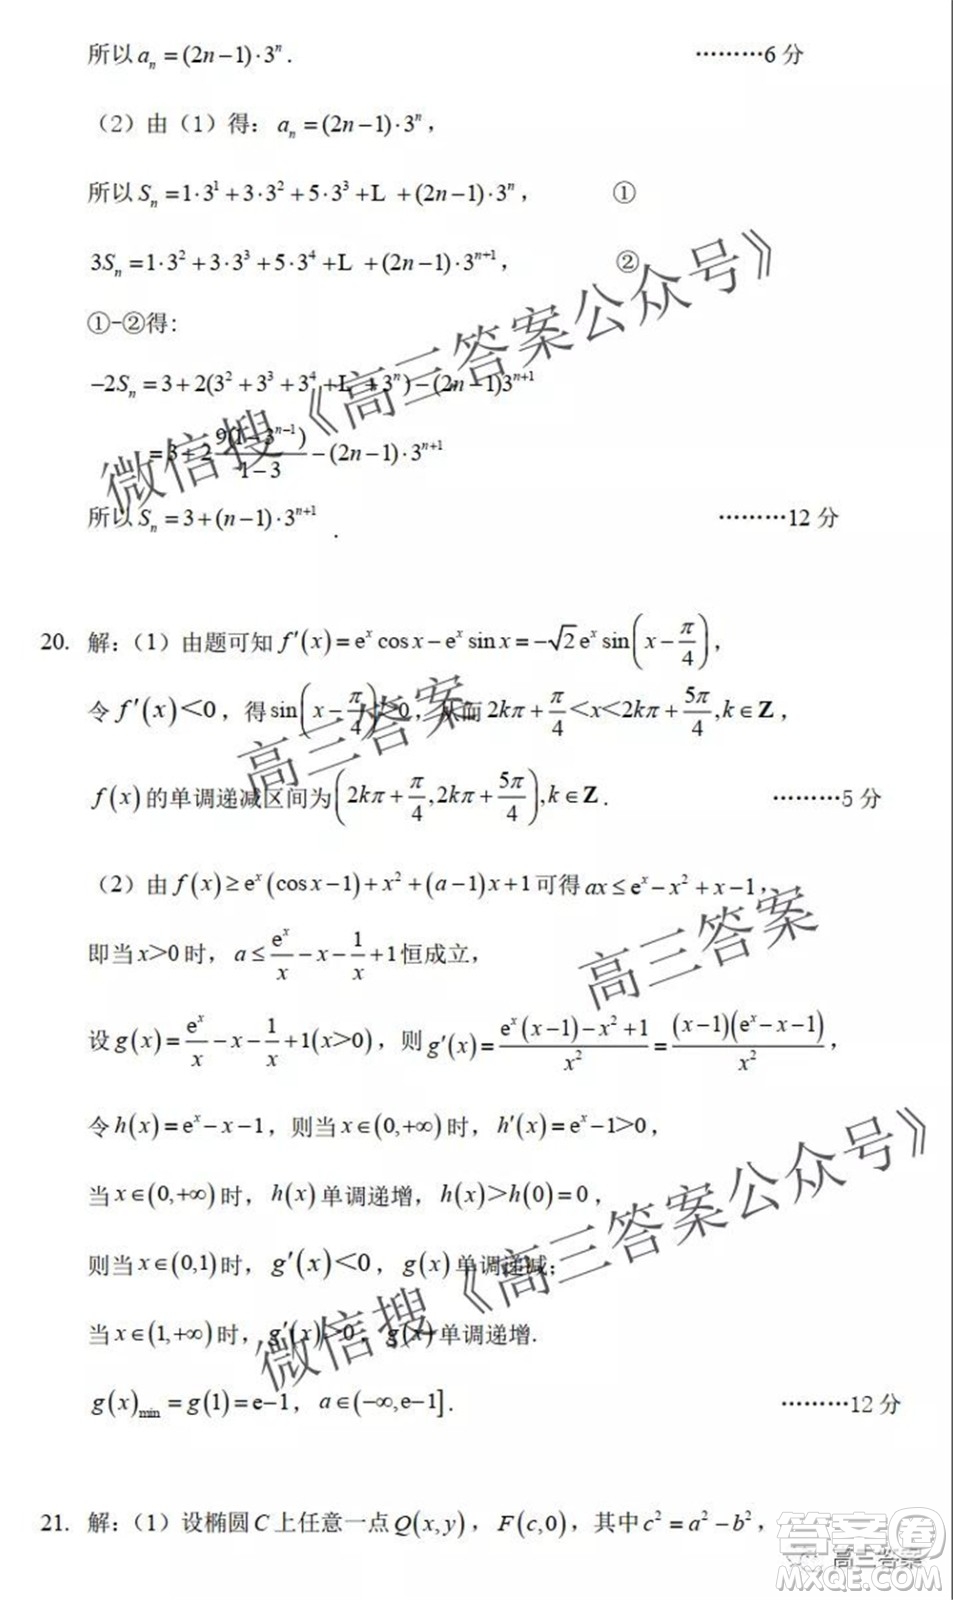 所以 aₙ = (2n−1)·3ⁿ. ………6 分
（2）由（1）得：aₙ = (2n−1)·3ⁿ，
所以 Sₙ = 1·3¹ + 3·3² + 5·3³ + L + (2n−1)·3ⁿ， ①
3Sₙ = 1·3² + 3·3³ + 5·3⁴ + L + (2n−1)·3ⁿ⁺¹， ②
①-②得:
−2Sₙ = 3 + 2(3² + 3³ + 3⁴ + L + 3ⁿ) − (2n−1)3ⁿ⁺¹
= 3 + 2 9(1−3ⁿ⁻¹)/(1−3) − (2n−1)·3ⁿ⁺¹
所以 Sₙ = 3 + (n−1)·3ⁿ⁺¹ . ………12 分
20. 解：（1）由题可知 f′(x) = eˣ cos x − eˣ sin x = −√2 eˣ sin(x − π/4)，
令 f′(x)<0，得 sin(x − π/4)>0，从而 2kπ + π/4 < x < 2kπ + 5π/4, k∈Z，
f(x) 的单调递减区间为 (2kπ + π/4, 2kπ + 5π/4), k∈Z. ………5 分
（2）由 f(x) ≥ eˣ(cos x − 1) + x² + (a−1)x + 1 可得 ax ≤ eˣ − x² + x − 1，
即当 x>0 时，a ≤ eˣ/x − x − 1/x + 1 恒成立，
设 g(x) = eˣ/x − x − 1/x + 1(x>0)，则 g′(x) = (eˣ(x−1) − x² + 1)/x² = (x−1)(eˣ − x − 1)/x²，
令 h(x) = eˣ − x − 1，则当 x∈(0,+∞) 时，h′(x) = eˣ − 1>0，
当 x∈(0,+∞) 时，h(x) 单调递增，h(x)>h(0) = 0，
则当 x∈(0,1) 时，g′(x)<0，g(x) 单调递减；
当 x∈(1,+∞) 时，g′(x)>0，g(x) 单调递增.
g(x)min = g(1) = e−1，a∈(−∞,e−1]. ………12 分
21. 解：（1）设椭圆 C 上任意一点 Q(x,y)，F(c,0)，其中 c² = a² − b²，
微信搜《高三答案公众号》
高三答案
高三答案
微信搜《高三答案公众号》
答案圈
高三答案
MXQE.COM